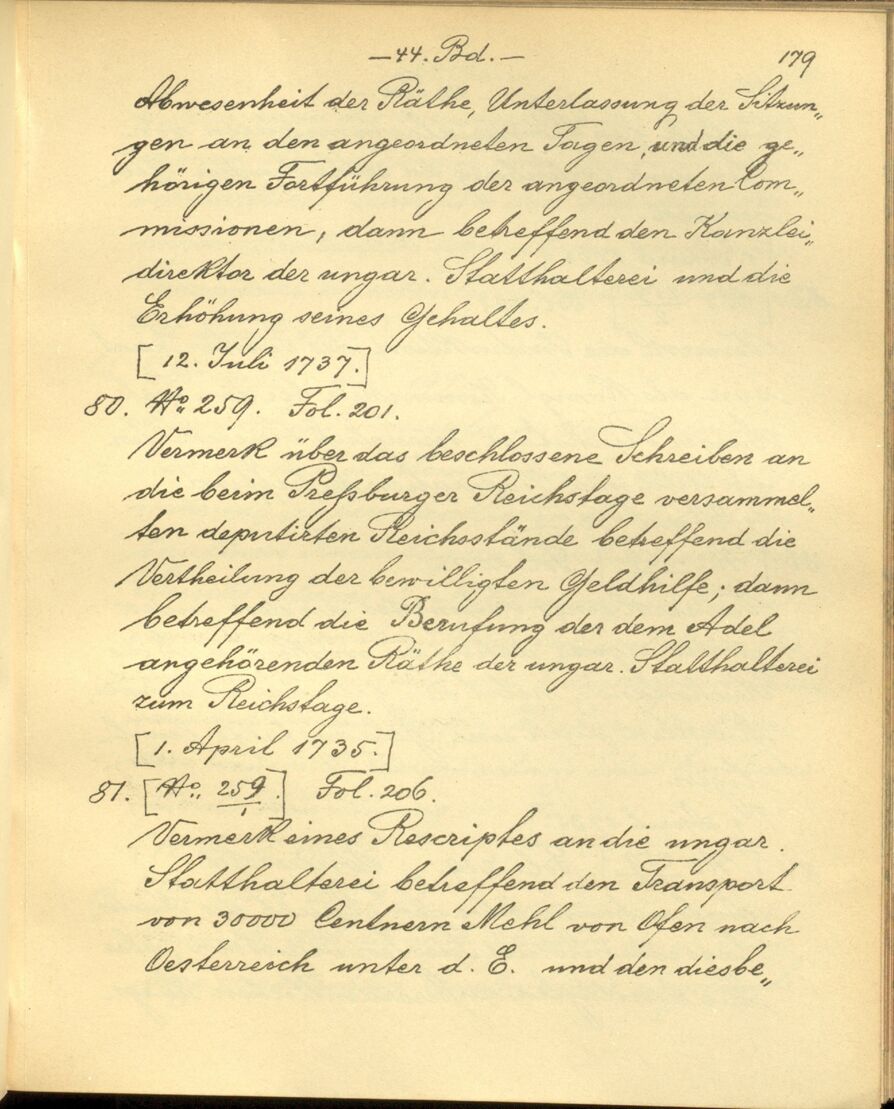 — 44. Bd. —
179
Abwesenheit der Räthe, Unterlassung der Sitzun„
gen an den angeordneten Tagen, und die ge„
hörigen Fortführung der angeordneten Com„
missionen, dann betreffend den Kanzlei„
direktor der ungar. Statthalterei und die
Erhöhung seines Gehaltes.
[12. Juli 1737.]
80. No. 259. Fol. 201.
Vermerk über das beschlossene Schreiben an
die beim Preßburger Reichstage versammel„
ten deputirten Reichsstände betreffend die
Vertheilung der bewilligten Geldhilfe; dann
betreffend die Berufung der dem Adel
angehörenden Räthe der ungar. Statthalterei
zum Reichstage.
[1. April 1735.]
81. [No. 259/1.] Fol. 206.
Vermerk eines Rescriptes an die ungar.
Statthalterei betreffend den Transport
von 30000 Centnern Mehl von Ofen nach
Oesterreich unter d. E. und den diesbe„